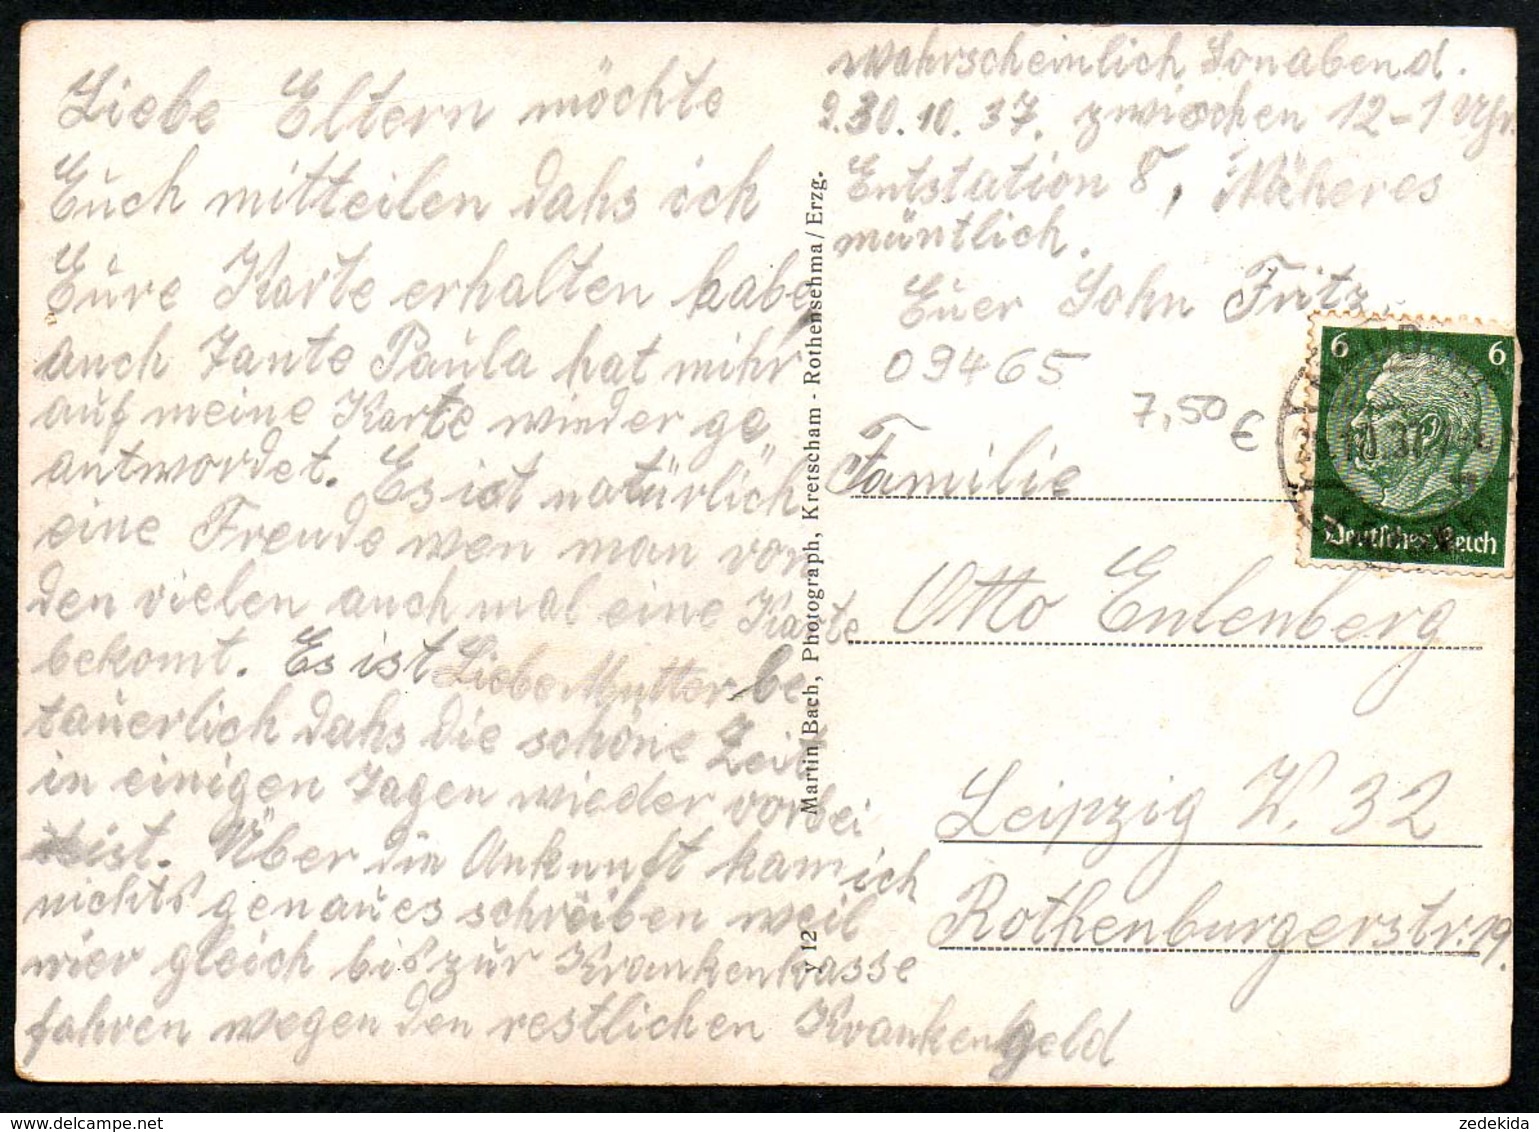 Liebe Eltern möchte
Euch mitteilen dahs ich
Eure Karte erhalten habe
auch Tante Paula hat mihr
auf meine Karte wieder ge„
antwordet. Es ist natürlich
eine Freude wen man von
den vielen auch mal eine Karte
bekomt. Es ist Liebe Mutter be
tauerlich dahs die schöne Zeit
in einigen Tagen wieder vorbei
ist. Über die Ankunft kam ich
nichts genaues schreiben weil
wier gleich bis zur Krankenkasse
fahren wegen den restlichen Krankengeld
wahrscheinlich Sonabend.
30.10.37. zwischen 12-1 Uhr.
Entstation 8, Näheres
müntlich.
Euer Sohn Fritz
09465
7,50 €
Familie
Otto Eulenberg
Leipzig W. 32
Rothenburgerstr. 19.
y 12 Martin Bach, Photograph, Kretscham - Rothensehma/Erzg.
6 6
Deutsches Reich
zedekida